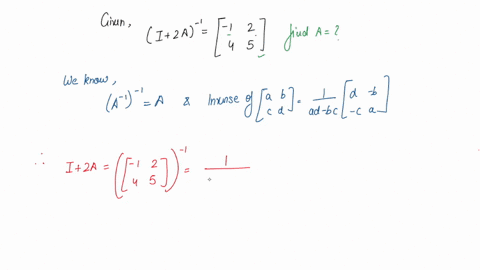 Given, (I+2A)⁻¹ = [-1 2; 4 5] find A = ?
We know,
(A⁻¹)⁻¹ = A & Inverse of [a b; c d] = 1/(ad-bc) [d -b; -c a]
∴ I+2A = ([-1 2; 4 5])⁻¹ = 1/